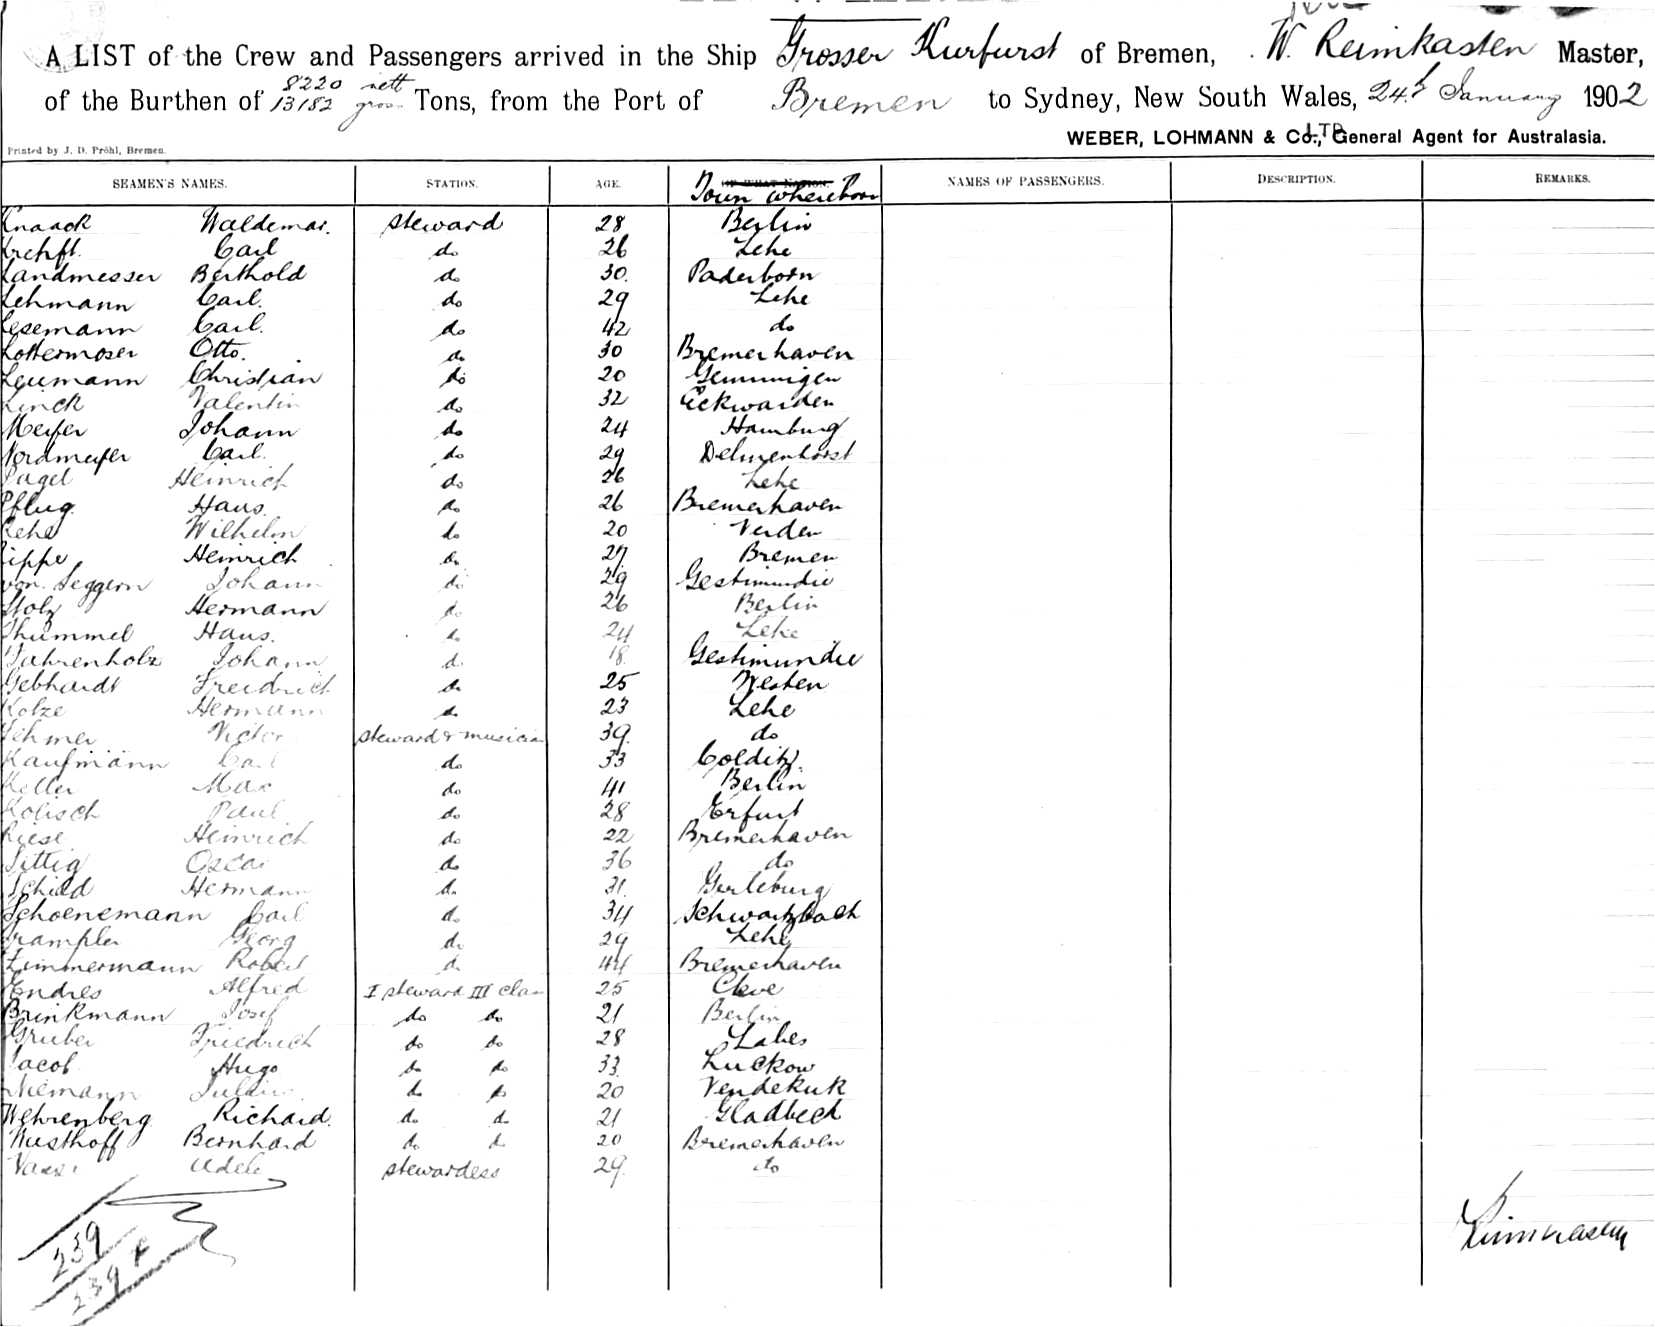 A LIST of the Crew and Passengers arrived in the Ship Grosser Kurfurst of Bremen, W. Reimkasten Master,
of the Burthen of 8220 nett 13182 gross Tons, from the Port of Bremen to Sydney, New South Wales, 24th January 1902
WEBER, LOHMANN & Co., LTD General Agent for Australasia.
Printed by J. D. Pröhl, Bremen.
SEAMEN'S NAMES. STATION. AGE. OF WHAT NATION. Town where born NAMES OF PASSENGERS. DESCRIPTION. REMARKS.
Knaack Waldemar. steward 28 Berlin
Carl do 26 Lehe
Landmesser Berthold do 30. Paderborn
Lehmann Carl. do 29 Lehe
Lesemann Carl. do 42 do
Lottermoser Otto. do 30 Bremerhaven
Leumann Christian do 20 Gemmigen
Linck Valentin do 32 Eckwarden
Meyer Johann do 24 Hamburg
Nordmeyer Carl. do 29 Delmenhorst
Pagel Heinrich do 26 Lehe
Pflug. Hans. do 26 Bremerhaven
Wilhelm do 20 Verden
Heinrich do 27 Bremen
von Seggern Johann do 29 Gestimundie
Stolz Hermann do 26 Berlin
Thummel Hans. do 24 Lehe
Fahrenholz Johann do 18. Gestimundie
Gebhardt Freidrich do 25 Westen
Kotze Hermann do 23 Lehe
Victor steward & musician 39. do
Kaufmann Carl do 33 Colditz.
Keller Max do 41 Berlin
Kolisch Paul do 28 Erfurt
Riese Heinrich do 22 Bremerhaven
Sittig Oscar do 36 do
Schild Hermann do 31. Gerleburg
Schoenemann Carl do 34 Schwartzbach
Trampler Georg do 29 Lehe
Zimmermann Robert do 44 Bremerhaven
Endres Alfred I steward III Class 25 Cleve
Brinkmann Josef do do 21 Berlin
Gruber Friedrich do do 28 Labes
Jacob Hugo do do 33. Luckow
Niemann Julius do do 20 Vendekuk
Wehrenberg Richard. do do 21 Gladbeck
Wusthoff Bernhard do do 20 Bremerhaven
Adele stewardess 29. do
239
239
Reimkasten